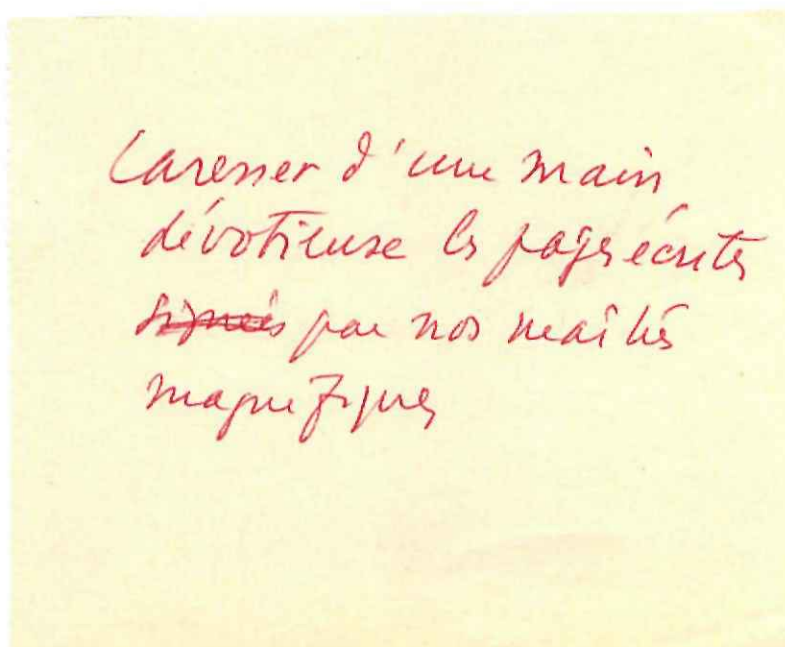 Caresser d'une main
dévotieuse les pages écrites
signées par nos maîtres
magnifiques